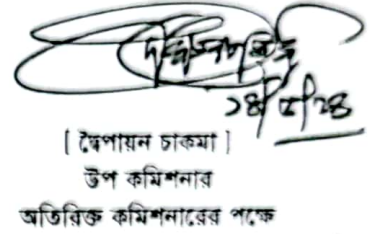 ১৪/৫/২৪
[ দ্বৈপায়ন চাকমা ]
উপ কমিশনার
অতিরিক্ত কমিশনারের পক্ষে